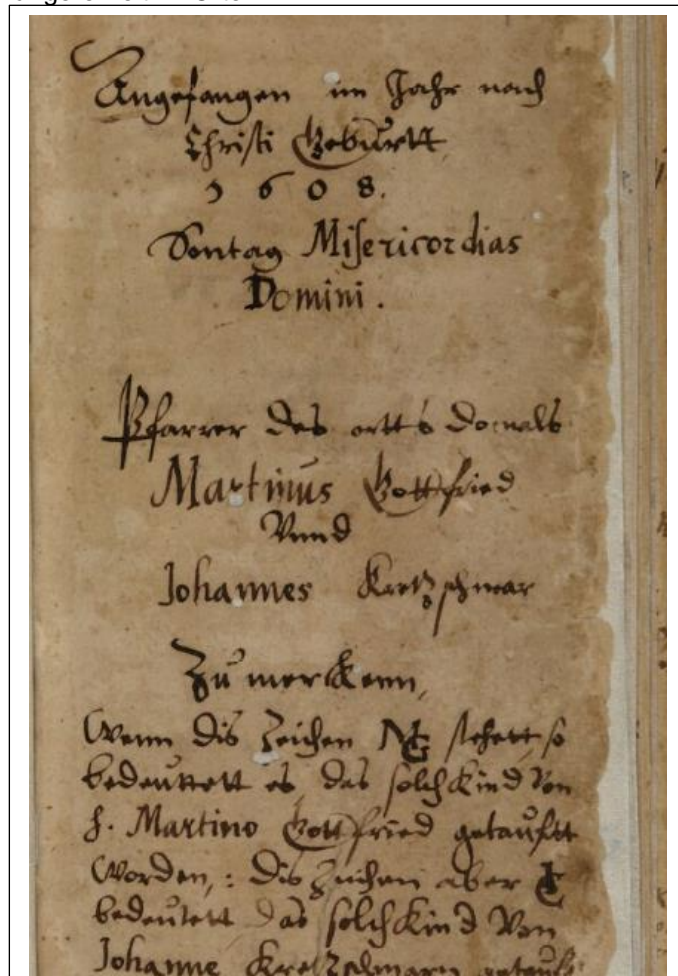 Angefangen im Jahr nach
Christi Geburtt
1 6 0 8.
Sontag Misericordias
Domini.
Pfarrer des ortts domals
Martinus Gottfried
Vnnd
Johannes Kretzschmar
Zu merckenn,
Wenn dis Zeichen MG stehett, so
bedeuttett es, das solch Kind von
H. Martino Gottfried getaufftt
Worden,: dis Zeichen aber
bedeutett das solch Kind von
Johanne Kretzschmarn